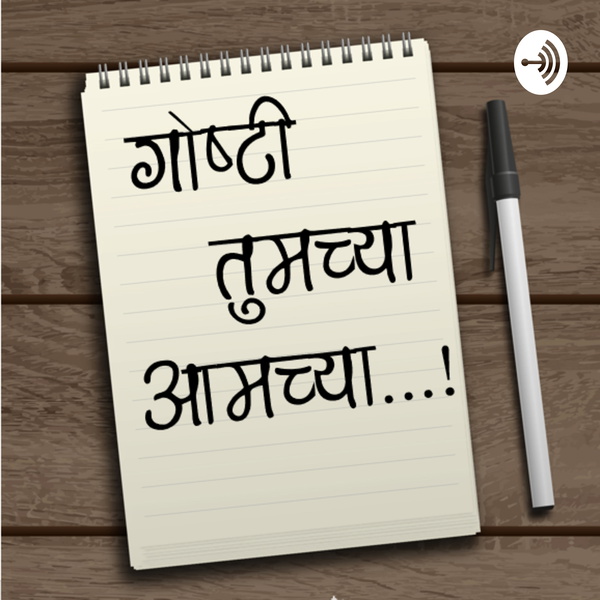 गोष्टी
तुमच्या
आमच्या...!